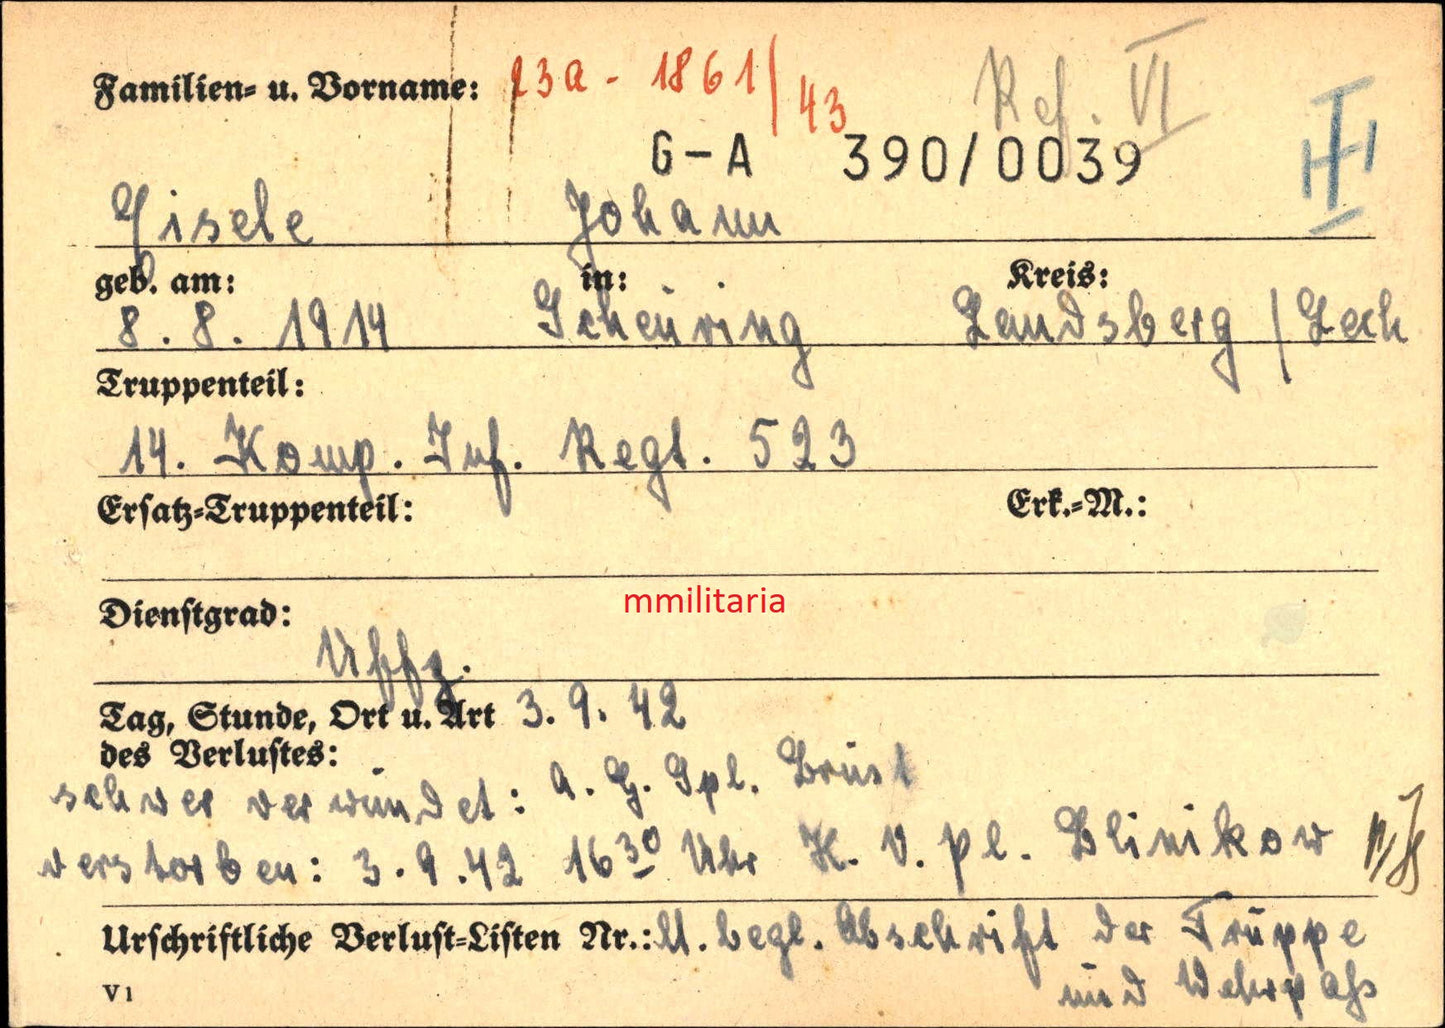 Familien- u. Vorname: 23a - 1861/43 Ref. VI
G-A 390/0039
Gisele Johann
geb. am: in: Kreis:
8.8.1914 Scheuring Landsberg/Lech
Truppenteil:
14. Komp. Inf. Regt. 523
Ersatz-Truppenteil: Erk.-M.:
mmilitaria
Dienstgrad:
Uffz.
Tag, Stunde, Ort u. Art 3.9.42
des Verlustes:
schwer verwundet: A.G.Spl. Brust
verstorben: 3.9.42 16³⁰ Uhr H.V.Pl. Blinikow
Urschriftliche Verlust-Listen Nr.: Lt. begl. Abschrift der Truppe
und Wehrpaß
V1